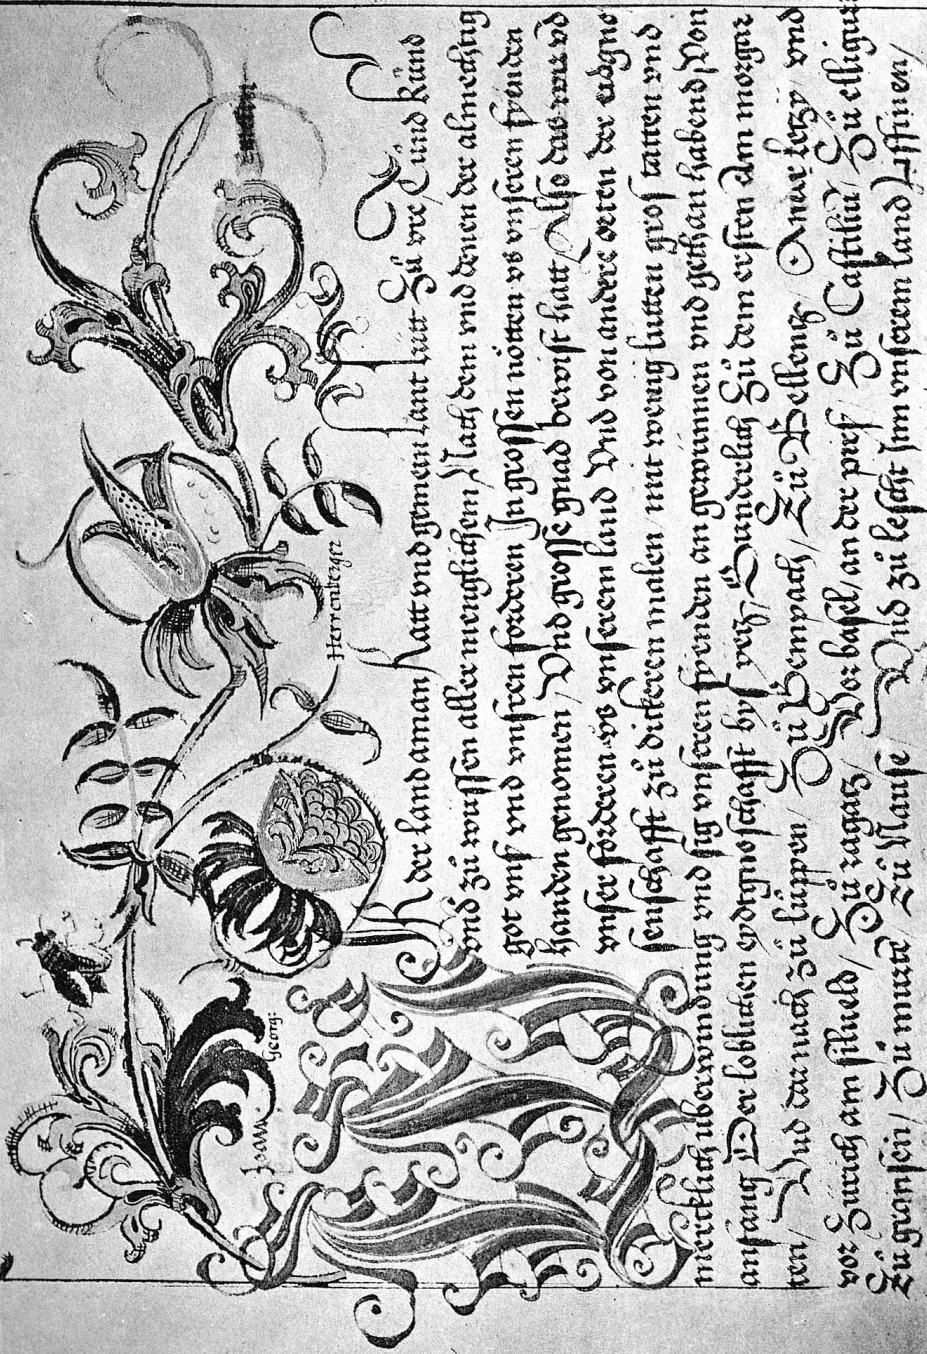 Joann. Georg: Herrenberger
WIr der landamman Ratt vnd gemein lant lütt Zů vre Tünd künd
vnd zů wüssen aller menglichem / Nach dem vnd denen der almechtig
got vnß vnd vnsren forderen In grossen nötten vs vnseren fyenden
handen genomen / Vnd grosse gnad bewist hatt Also das wir vnd
vnser forderen vs vnserem land Vnd von andere orten der eidgno
senschafft zů dickeren malen mit wenig lutten gros tatten vnd
mercklich uberwindung vnd sig vnseren fyenden an gewunnen vnd gethan habend Von
anfang Der loblichen eydtgnoschafft byß / Sunderlich Zů dem ersten Am morgar
ten / Vnd dar nach Zů lüppen / Zů Sempach / Zů Bellentz / vnd
vor Zürich am silueld / Zů ragatz / Vor basel / an der pirß / Zů Castiliu / Zů
Zů gransen / Zů murtt / Zů Nanse / Vnd zů lescht Inn vnserem land Liffinen /